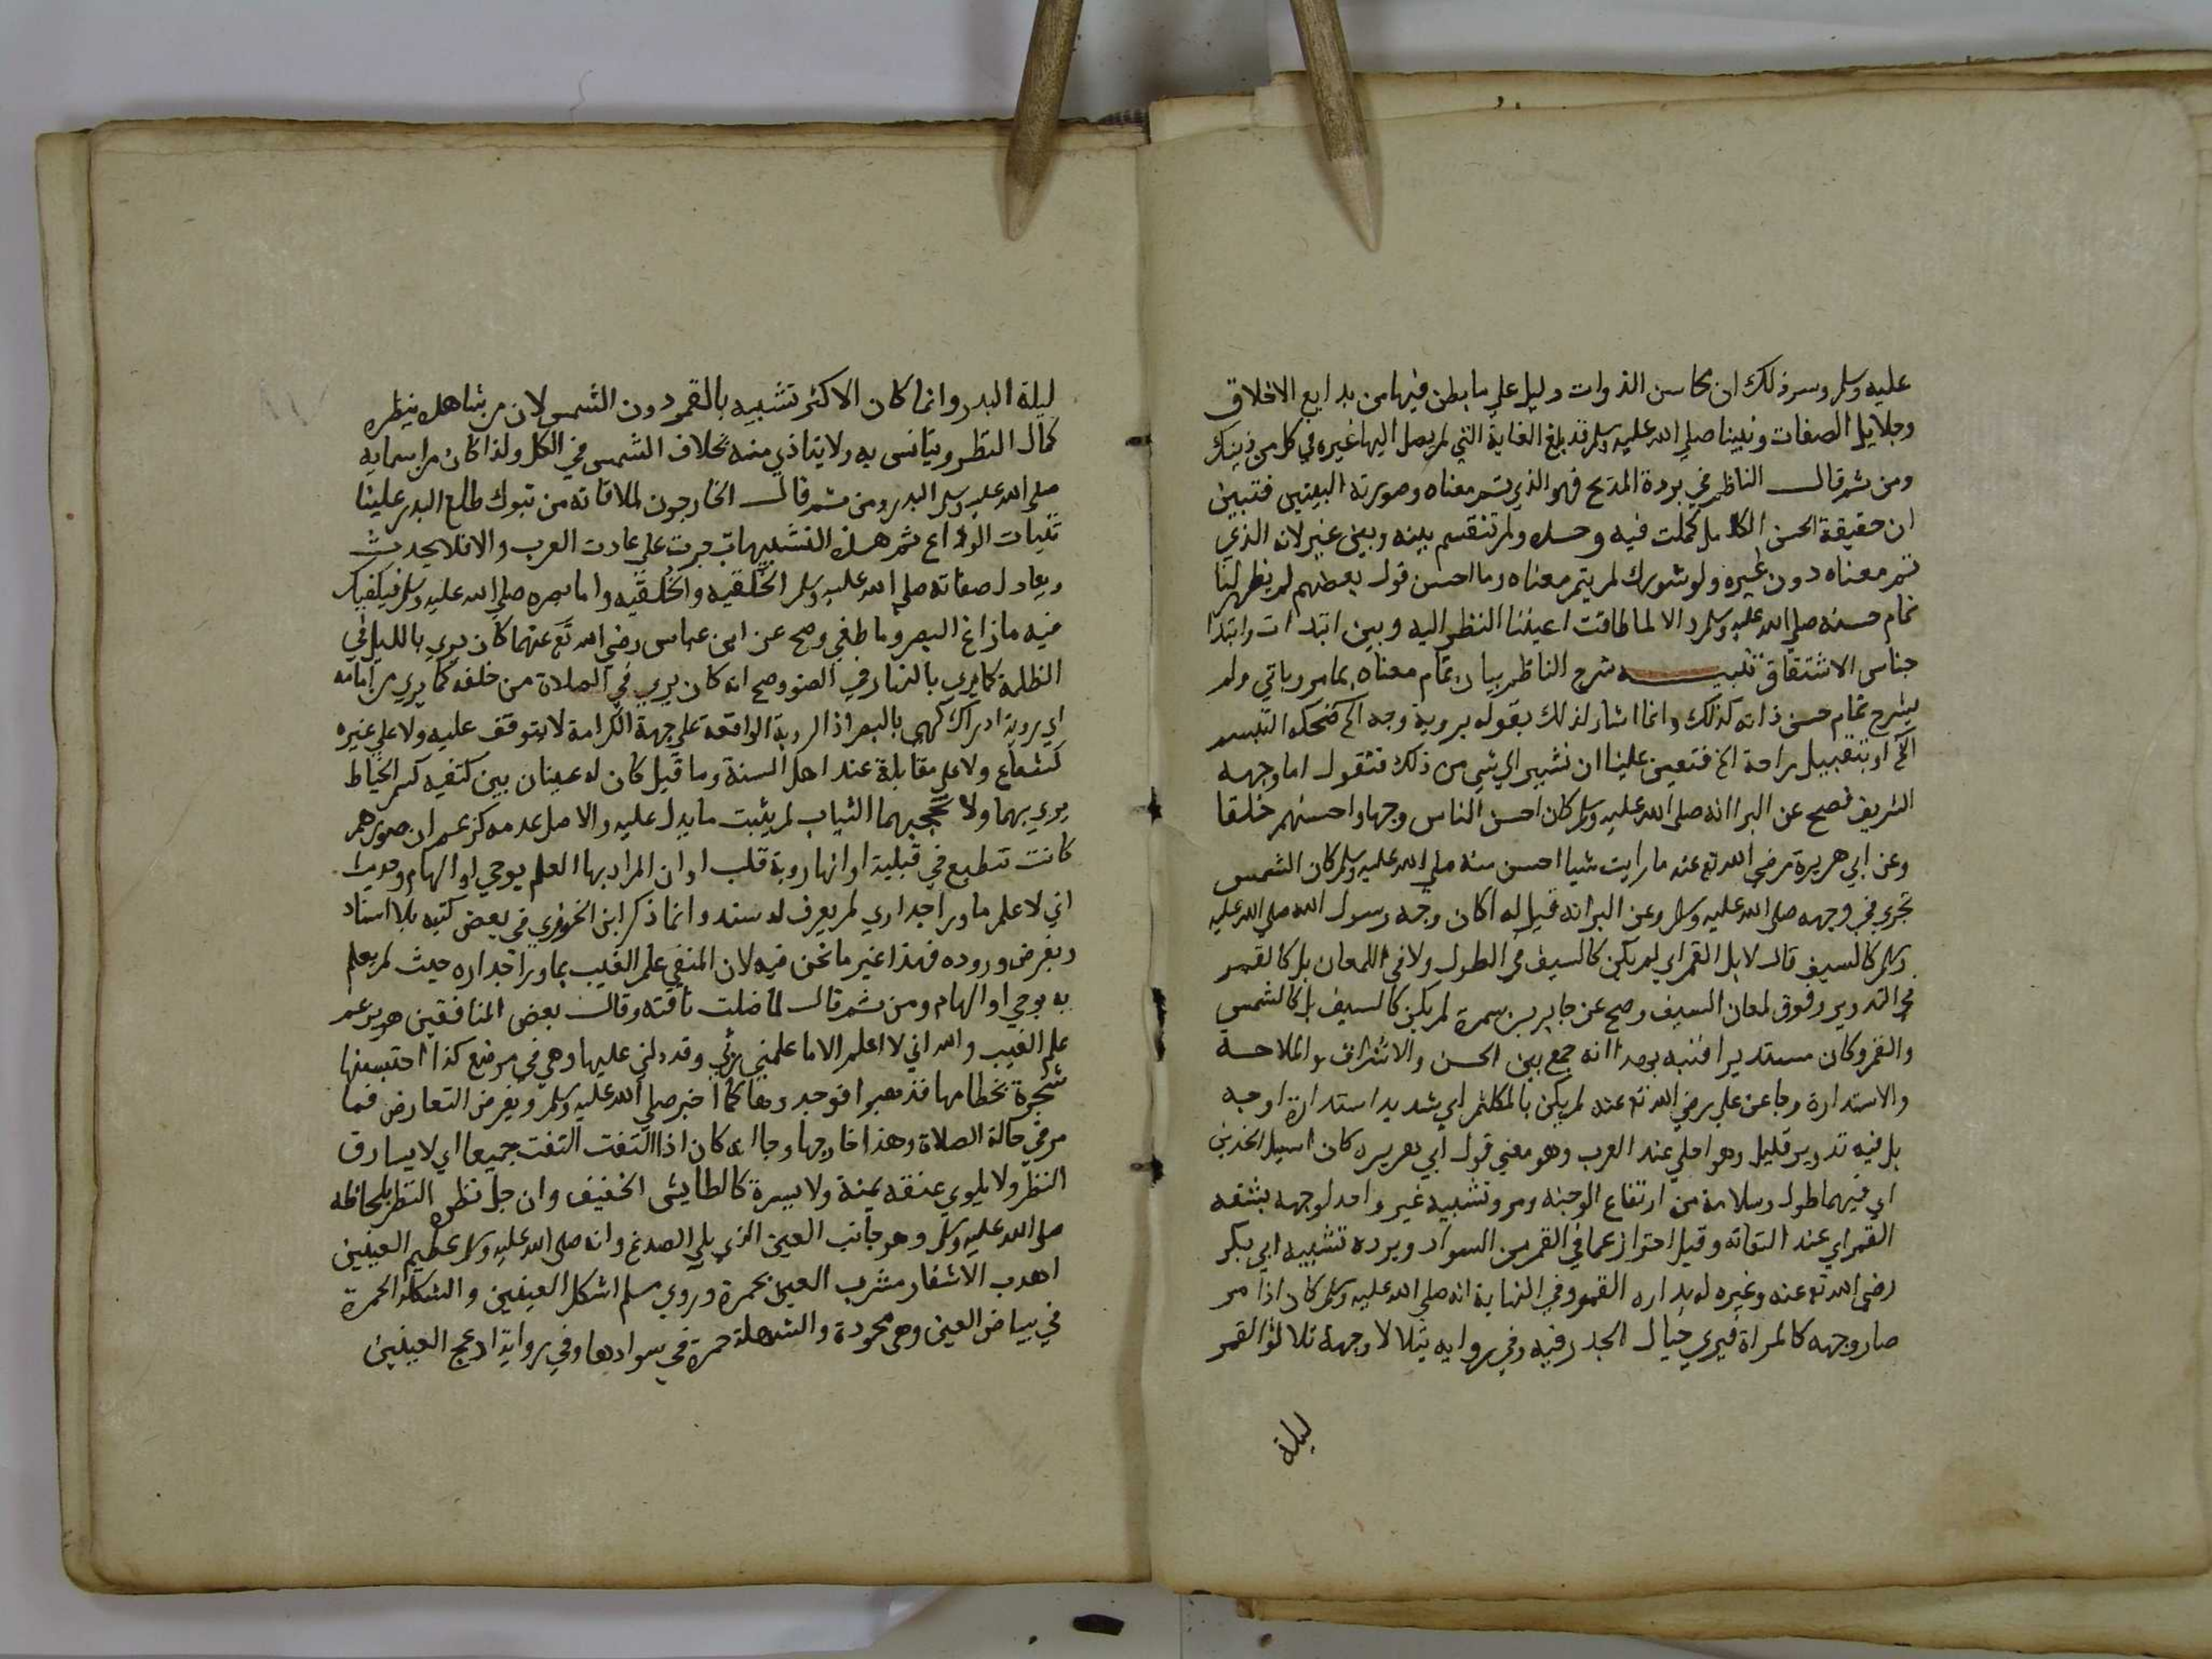 عليه وسلم وسر ذلك ان محاسن الذوات دليل علي ما بطن فيها من بدايع الاخلاق
وجلايل الصفات ونبينا صلي الله عليه وسلم قد بلغ الغاية التي لم يصل اليها غيره في كل من ذينك
ومن ثم قال الناظم في بردة المديح فهو الذي تم معناه وصورته البيتين فتبين
ان حقيقة الحسن الكامل كملت فيه وحده ولم تنقسم بينه وبين غيره لانه الذي
تم معناه دون غيره ولو شورك لم يتم معناه وما احسن قول بعضهم لم يظهر لنا
تمام حسنه صلي الله عليه وسلم والا لما طاقت اعيننا النظر اليه وبين ابتدات وابتدا
جناس الاشتقاق تنبيه شرح الناظم بيان تمام معناه بما مر وياتي ولم
يشرح تمام حسن ذاته كذلك وانما اشار لذلك بقوله بروية وجه الخ ضحكه التبسم
الخ او بتقبيل راحة الخ فتعين علينا ان نشير الي شي من ذلك فنقول اما وجهه
الشريف فصح عن البرا انه صلي الله عليه وسلم كان احسن الناس وجها واحسنهم خلقا
وعن ابي هريرة رضي الله تع عنه ما رايت شيا احسن منه صلي الله عليه وسلم كان الشمس
تجري في وجهه صلي الله عليه وسلم وعن البرا انه قيل له اكان وجه رسول الله صلي الله عليه
وسلم كالسيف قال لا بل القمر اي لم يكن كالسيف في الطول ولا في اللمعان بل كالقمر
في التدوير وفوق لمعان السيف وصح عن جابر بن سمرة لم يكن كالسيف بل كالشمس
والقمر وكان مستديرا فنبه بهذا انه جمع بين الحسن والاشراق والملاحة
والاستدارة وجا عن علي رضي الله تع عنه لم يكن بالمكلثم اي شديد استدارة الوجه
بل فيه تدوير قليل وهو احلي عند العرب وهو معني قول ابي هريره كان اسيل الخدين
اي فيهما طول وسلامة من ارتفاع الوجنه ومر وتشبيه غير واحد لوجهه بشقه
القمر اي عند التفاته وقيل احتراز عما في القمر من السواد ويرده تشبيه ابي بكر
رضي الله تع عنه وغيره له بداره القمر وفي النهاية انه صلي الله عليه وسلم كان اذا سر
صار وجهه كالمراة فيري خيال الجدر فيه وفي روايه يتلالا وجهه تلالؤ القمر
ليلة
ليلة البدر وانما كان الاكثر تشبيه بالقمر دون الشمس لان من شاهده ينظره
كمال النظر ويتانس به ولا يتاذي منه بخلاف الشمس في الكل ولذا كان من اسمايه
صلي الله عليه وسلم البدر ومن ثم قال الخارجون لملاقاته من تبوك طلع البدر علينا
ثنيات الوداع ثم هذه التشبيهات جرت علي عادت العرب والا فلا يحدث
ويعادل صفاته صلي الله عليه وسلم الخَلقيه والخُلقيه واما بصره صلي الله عليه وسلم فيكفيك
فيه ما زاغ البصر وما طغي وصح عن ابن عباس رضي الله تع عنهما كان يري بالليل في
الظلمة كما يري بالنهار في الضو وصح انه كان يري في الصلاة من خلفه كما يري من امامه
اي روية ادراك كهي بالبصر اذ الروية الواقعة علي جهة الكرامة لا يتوقف عليه ولا علي غيره
كشعاع ولا علي مقابلة عند اهل السنة وما قيل كان له عينان بين كتفيه كسم الخياط
يري بهما ولا تحجبهما الثياب لم يثبت ما يدل عليه والاصل عدمه كزعم ان صورهم
كانت تنطبع في قبلية او انها روية قلب او ان المراد بها العلم بوحي او الهام وحديث
اني لا علم ما ورا جداري لم يعرف له سند وانما ذكره ابن الجوزي في بعض كتبه بلا اسناد
وبفرض وروده فهذا غير ما نحن فيه لان المنفي علم الغيب بما ورا جداره حيث لم يعلم
به بوحي او الهام ومن ثم قال لما ضلت ناقته وقال بعض المنافقين هو يزعم
علم الغيب والله اني لا اعلم الا ما علمني ربي وقد دلني عليها وهي في موضع كذا احتبستها
شجرة بخطامها فذهبوا فوجدوها كما اخبر صلي الله عليه وسلم وبفرض التعارض فما
مر في حالة الصلاة وهذا خارجها وجا انه كان اذا التفت التفت جميعا اي لا يسارق
النظر ولا يلوي عنقه يمنة ولا يسرة كالطايش الخفيف وان جل نظره النظر بلحاظه
صلي الله عليه وسلم وهو جانب العين الذي يلي الصدغ وانه صلي الله عليه وسلم عظيم العينين
اهدب الاشفار مشرب العين بحمرة وروي مسلم اشكل العينين والشكلة الحمرة
في بياض العين وهي محمودة والشهلة حمرة في سوادها وفي رواية ادعج العينين